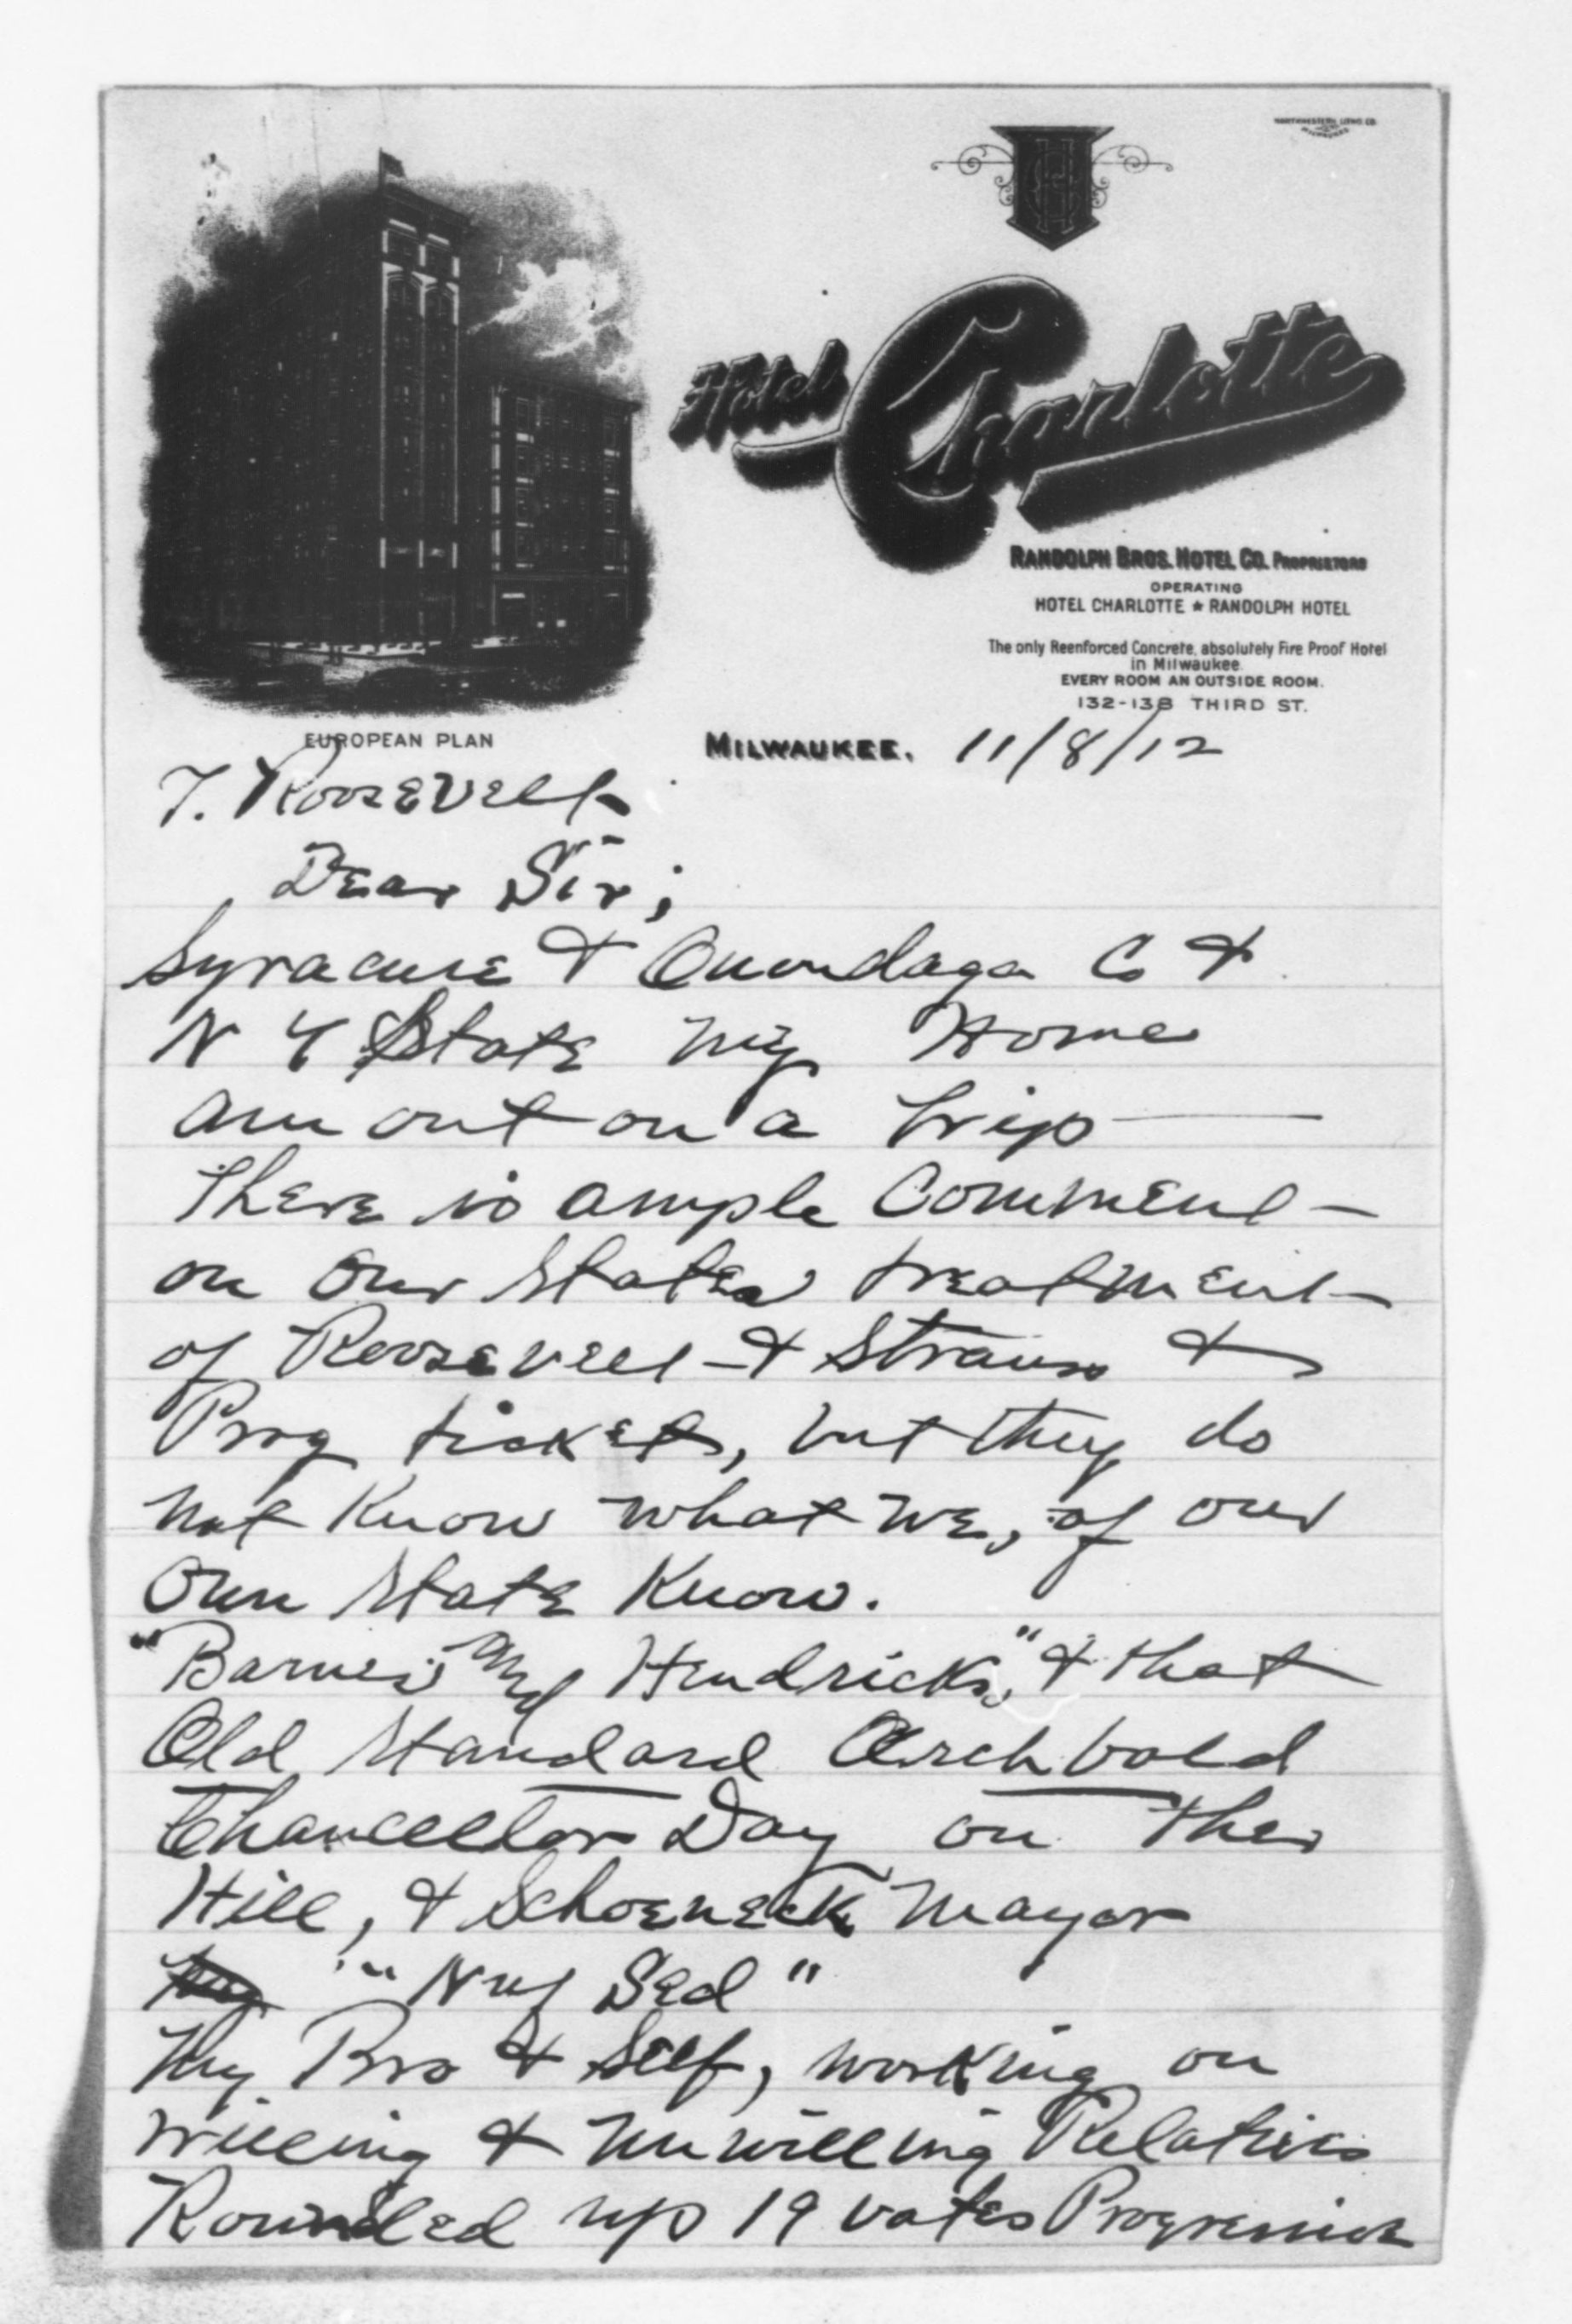 NORTHWESTERN LITHO. CO.
MILWAUKEE
Hotel Charlotte
RANDOLPH BROS. HOTEL CO. PROPRIETORS
OPERATING
HOTEL CHARLOTTE ★ RANDOLPH HOTEL
The only Reenforced Concrete, absolutely Fire Proof Hotel
in Milwaukee.
EVERY ROOM AN OUTSIDE ROOM.
132-138 THIRD ST.
EUROPEAN PLAN
MILWAUKEE, 11/8/12
T. Roosevelt
Dear Sir;
Syracuse & Onondaga Co &
N Y State my Home
am out on a trip —
There is ample Comment
on our States treatment
of Roosevelt & Strauss &
Prog ticket, but they do
not Know what we, of our
Own State Know.
"Barnes and Hendricks," & that
Old Standard Archbold
Chancellor Day on the
Hill, & Schoeneck Mayor
"Nuf Sed"
My Bro & Self, working on
willing & unwilling Relatives
Rounded up 19 votes Progressive